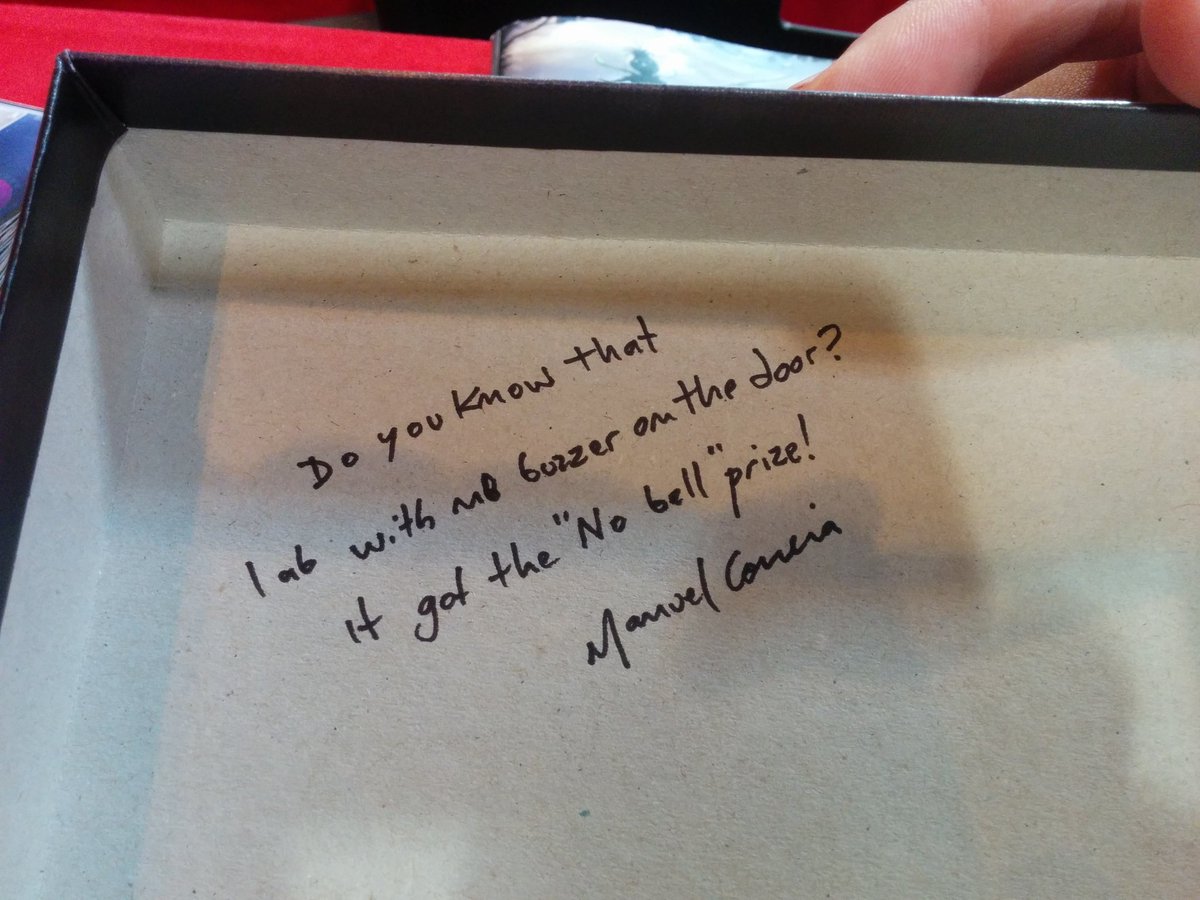 Do you know that
lab with no buzzer on the door?
it got the "No bell" prize!
Manuel Correia